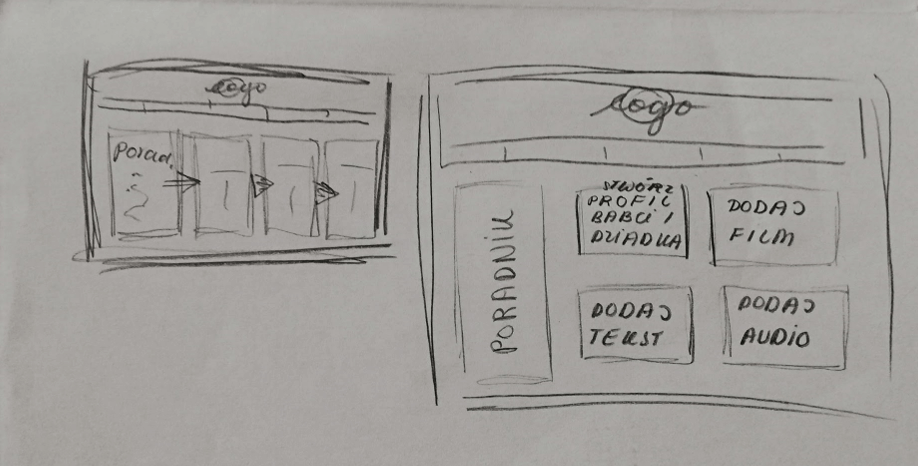 Logo
Porad.
Logo
PORADNIK
STWÓRZ
PROFIL
BABCI I
DZIADKA
DODAJ
FILM
DODAJ
TEKST
DODAJ
AUDIO